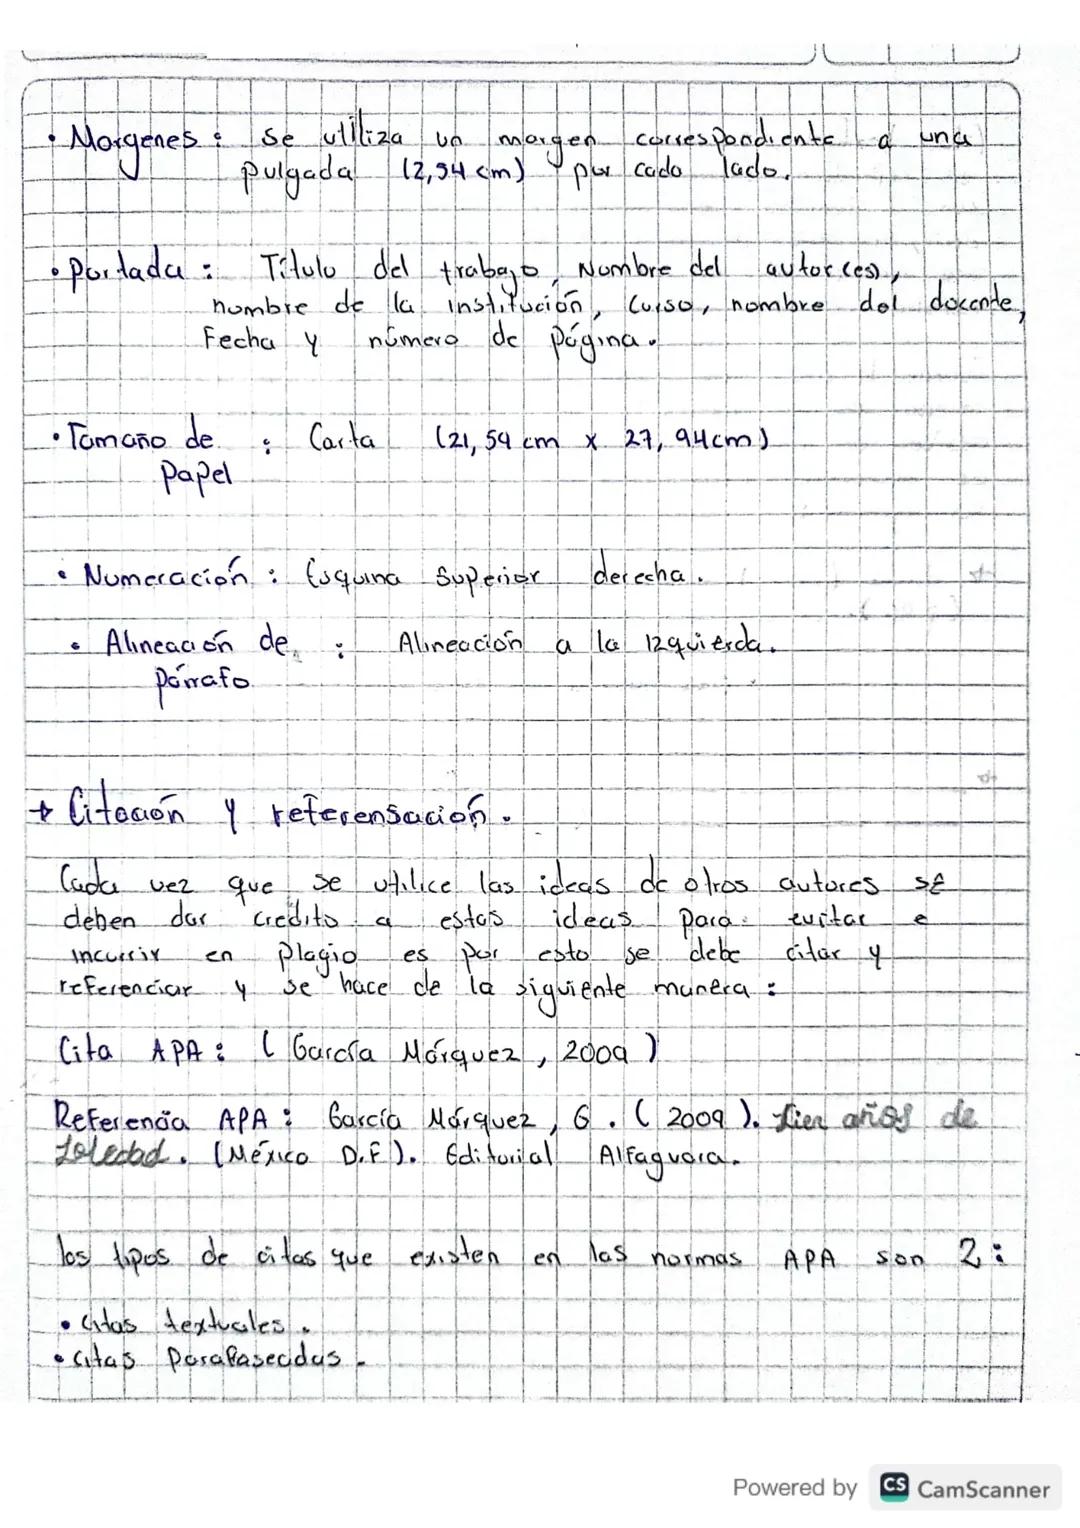 • Margenes : Se utiliza un margen correspondiente a una
pulgada (2,54 cm) por cada lado.
• Portada : Título del trabajo, Nombre del autor(es),
nombre de la institución, Curso, nombre del docente,
Fecha y número de página.
• Tamaño de : Carta (21,59 cm x 27,94cm)
Papel
• Numeración : Esquina Superior derecha.
• Alineación de : Alineación a la izquierda.
Párrafo
→ Citación y referensación.
Cada vez que se utilice las ideas de otros autores se
deben dar credito a estas ideas para evitar e
incurrir en plagio es por esto se debe citar y
referenciar y se hace de la siguiente manera :
Cita APA : ( García Márquez, 2009 )
Referencia APA : García Márquez, G. ( 2009 ). Cien años de
Soledad. (México D.F). Editorial Alfaguara.
los tipos de citas que existen en las normas APA son 2 :
• Citas textuales.
• citas Parafasecadas.
Powered by CS CamScanner